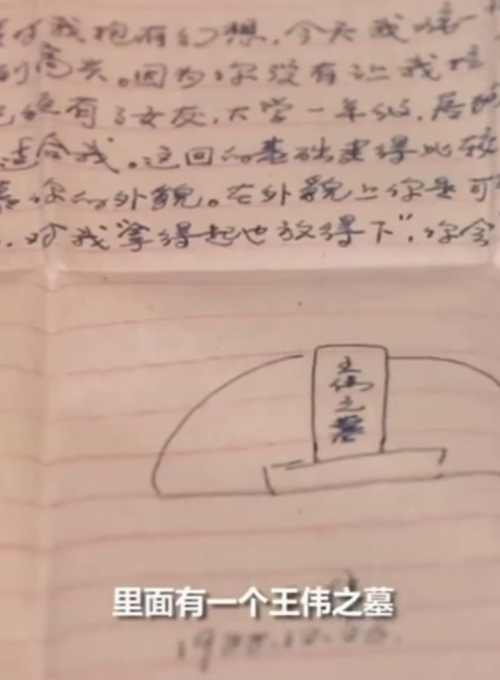 对我抱有幻想,今天我
高兴。因为你没有让我
有了女友,大学一年级,
适合我。这回的基础建得比较
你的外貌。在外貌上你是可
,对我“拿得起也放得下”,你会
王伟之墓
里面有一个王伟之墓